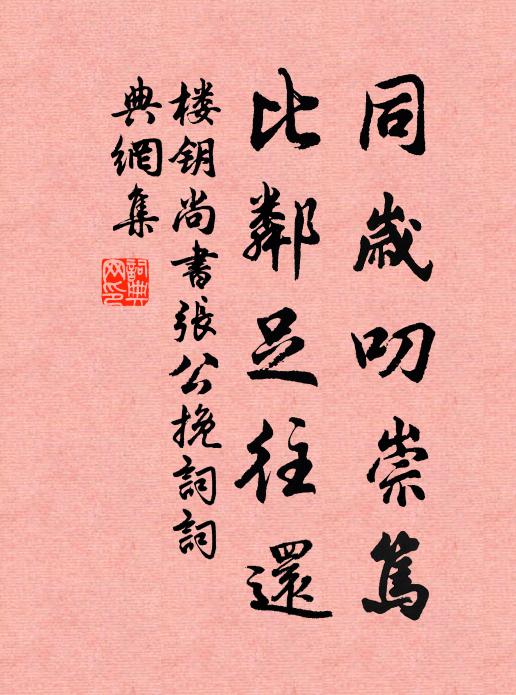 同歲叨崇篤
比鄰足往還
楼钥尚書張公挽詞詞
典網集
詞典
网印